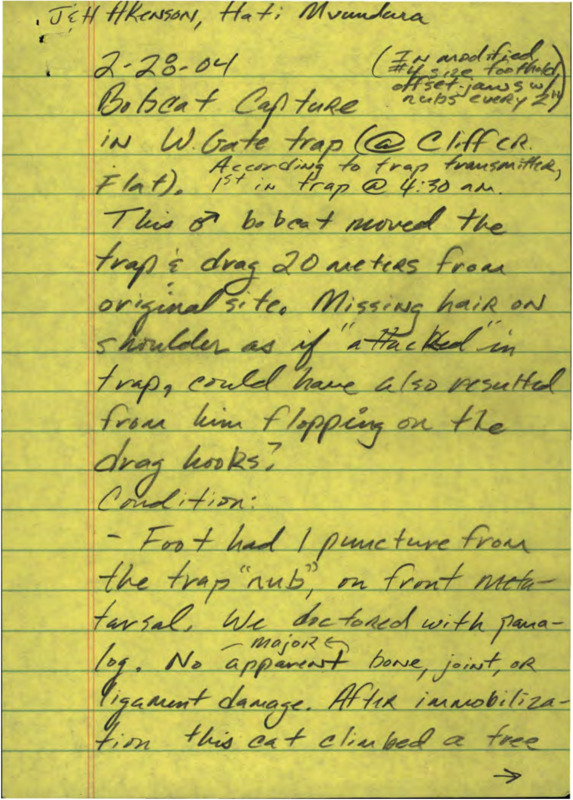 Jeff Akenson, Hati Mvundura
2-28-04
(In modified
#4 size foothold,
offset-jaws w/
nubs every 2")
Bobcat Capture
in W. Gate trap (@ Cliff CR.
Flat). According to trap transmitter,
1st in trap @ 4:30 am.
This ♂ bobcat moved the
trap & drag 20 meters from
original site. Missing hair on
shoulder as if "attacked" in
trap, could have also resulted
from him flopping on the
drag hooks?
Condition:
- Foot had 1 puncture from
the trap "nub", on front meta-
tarsal. We doctored with pana-
log. No apparent major bone, joint, or
ligament damage. After immobiliza-
tion this cat climbed a tree
→